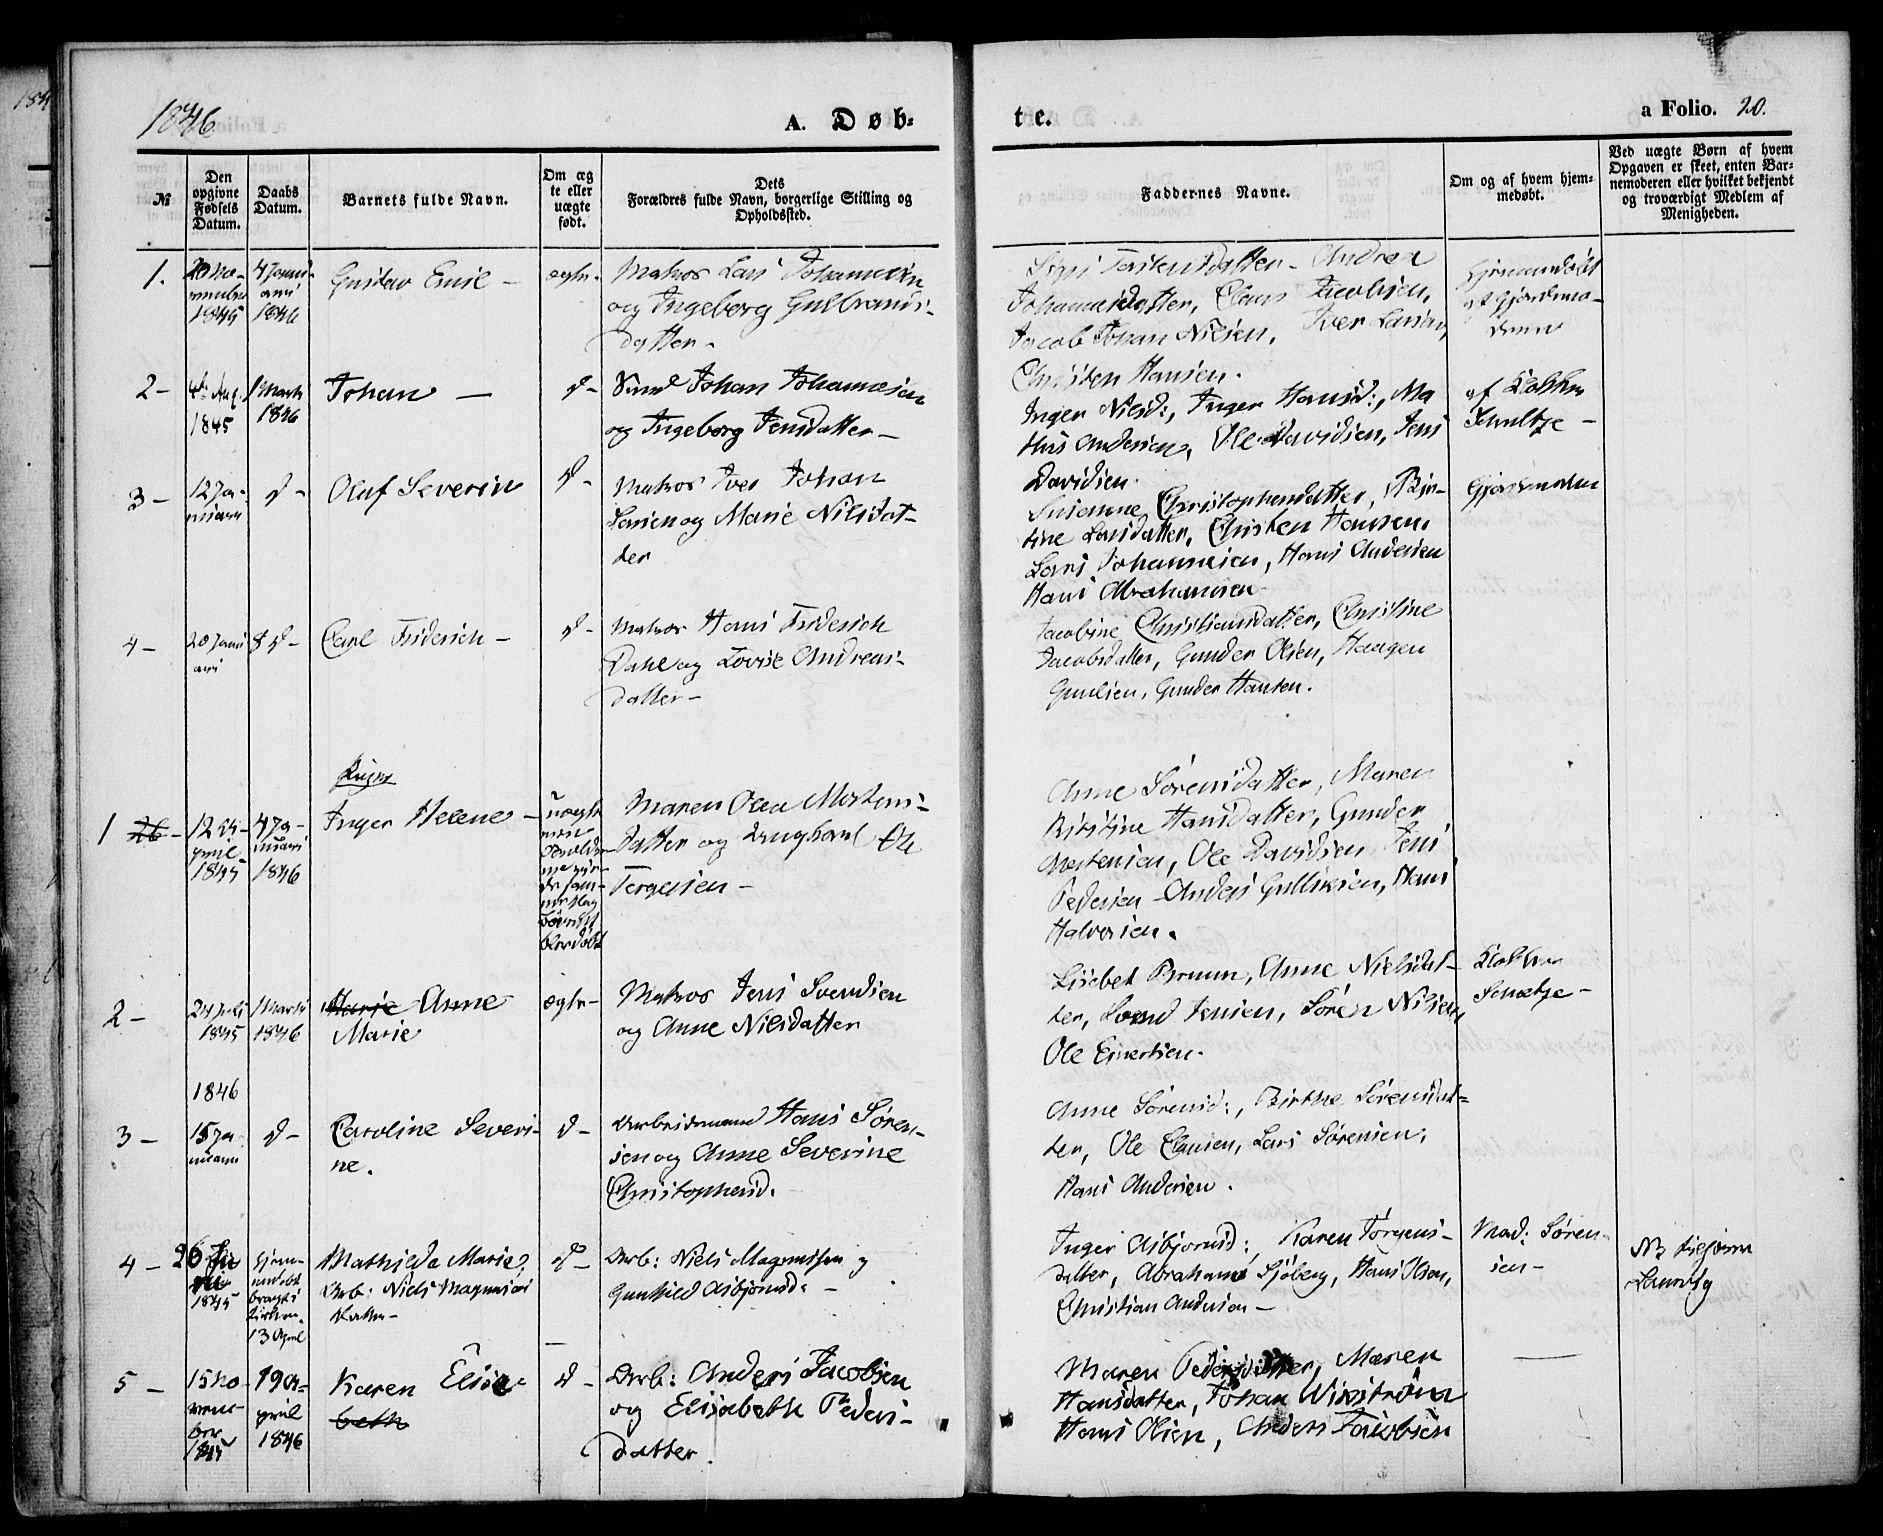 1846
A. Døb-
te.
a Folio. 20.
№
Den
opgivne
Fødsels
Datum.
Daabs
Datum.
Barnets fulde Navn.
Om æg
te eller
uægte
født.
Dets
Forældres fulde Navn, borgerlige Stilling og
Opholdssted.
Faddernes Navne.
Om og af hvem hjem-
medøbt.
Ved uægte Børn af hvem
Opgaven er skeet, enten Bar-
nemoderen eller hvilket bekjendt
og troværdigt Medlem af
Menigheden.
1.
1845
4 Janu-
ari
1846
Gustav Emil -
ægte.
Matros Lars Johannesen
og Ingeborg Gulbrands-
datter -
Andrea
Johannesdatter, Claus Jacobsen,
Jacob Johan Nilsen, Iver Larsen,
Christen Hansen.
hjemmedøbt
af Gjordemo-
deren
2 -
1845
1 Marts
1846
Johan -
d -
Johan Johannesen
og Ingeborg Jensdatter -
Inger Nilsd:, Inger Hansd:, Ma
this Andersen, Ole Davidsen, Jens
Davidsen.
af Klokker
Schultze -
3 -
12 Ja-
nuari
d -
Olaf Severin
d -
Matros Iver Johan
Larsen og Marie Nilsdat-
ter
Susanne Christophersdatter, Bir-
the Larsdatter, Christen Hansen,
Lars Johannesen, Hans Andersen
Hans Abrahamsen
Gjordemoder
4 -
20 Janu
ari
8 d -
Carl Friderich -
d -
Matros Hans Friderich
Dahl og Lovise Andreas-
datter -
Jacobine Christiansdatter, Christine
Jacobsdatter, Gunder Olsen, Haagen
Gundersen, Gunder Hansen.
Piger
1 26 -
12 A-
pril
1845
4 Ja-
nuari
1846
Inger Helene -
uægte
Maren Olea Mortens-
datter og Ungkarl Ole
Jørgensen -
Anne Sørensdatter, Maren
Kirstine Hansdatter, Gunder
Mortensen, Ole Davidsen Jens
Pedersen - Anders Gulliksen, Hans
Halvorsen.
2 -
24 Juli
1845
1 Marts
1846
Marie Anne
Marie
ægte -
Matros Jens Svendsen
og Anne Nilsdatter
Lisebet Bruun, Anne Nielsdat-
ter, Svend Jensen, Søren Nilsen,
Ole Evertsen.
Klokker
Schultze -
1846
3 -
15 Ja-
nuari
d -
Caroline Severi-
ne.
d -
Arbeidsmand Hans Søren-
sen og Anne Severine
Christophersd.
Anne Sørensd:, Birthe Sørensdat-
ter, Ole Clausen, Lars Sørensen,
Hans Andersen.
4 -
26
1845
hjem-
medøbt
bragt i
Kirken
13 April
Mathilde Marie,
Arb: Niels Magnussens
Datter -
d -
Arb: Niels Magnussen og
Gunhild Asbjørnsd: -
Inger Asbjørnsd:, Karen Jørgens-
datter, Abraham Sjøberg, Hans Olsen,
Christian Andersen -
Mad: Søren-
sen -
NB
Laurvig
5 -
15 No-
vem-
ber
1845
19 A-
pril
1846
Karen Elisa-
beth
d -
Arb: Anders Jacobsen
og Elisabeth Peders-
datter.
Maren Pedersdatter, Maren
Hansdatter, Johan Winstrøm
Hans Olsen, Anders Jacobsen